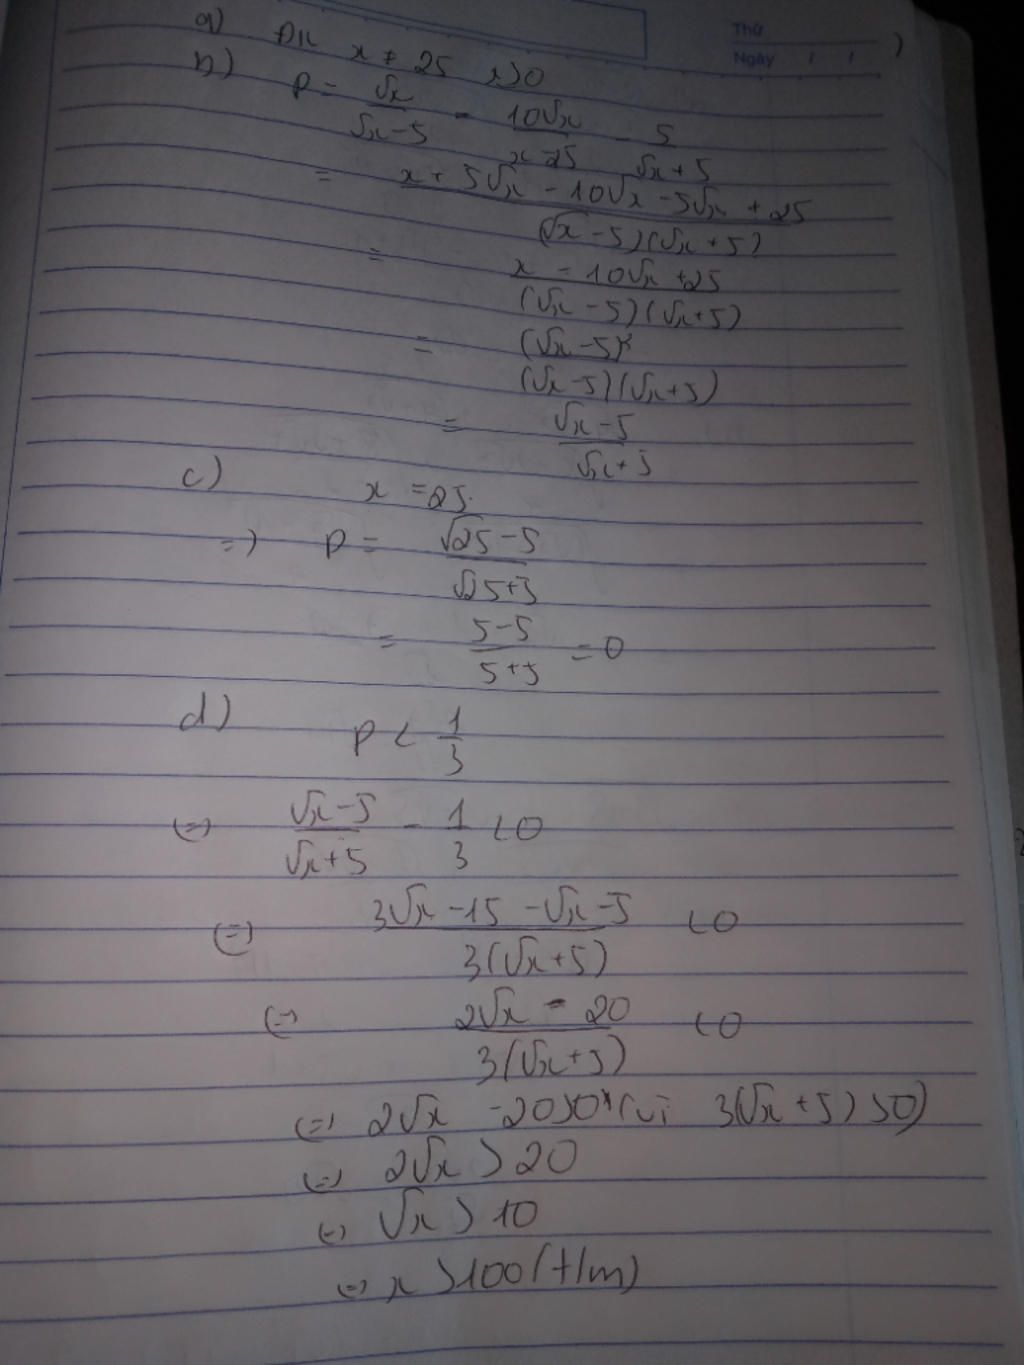 Thứ
Ngày / /
a) ĐK x ≠ 25 x>0
b) P = √x/(√x-5) - 10√x/(x-25) - 5/(√x+5)
= (x + 5√x - 10√x - 5√x + 25)/((√x-5)(√x+5))
= (x - 10√x + 25)/((√x-5)(√x+5))
= (√x-5)²/((√x-5)(√x+5))
= (√x-5)/(√x+5)
c) x = 25
=) P = (√25-5)/(√25+5)
= (5-5)/(5+5) = 0
d) P < 1/3
(=) (√x-5)/(√x+5) - 1/3 <0
(=) (3√x-15-√x-5)/(3(√x+5)) <0
(=) (2√x - 20)/(3(√x+5)) <0
(=) 2√x -20>0 (vì 3(√x+5)>0)
(=) 2√x > 20
(=) √x > 10
(=) x >100 (t/m)